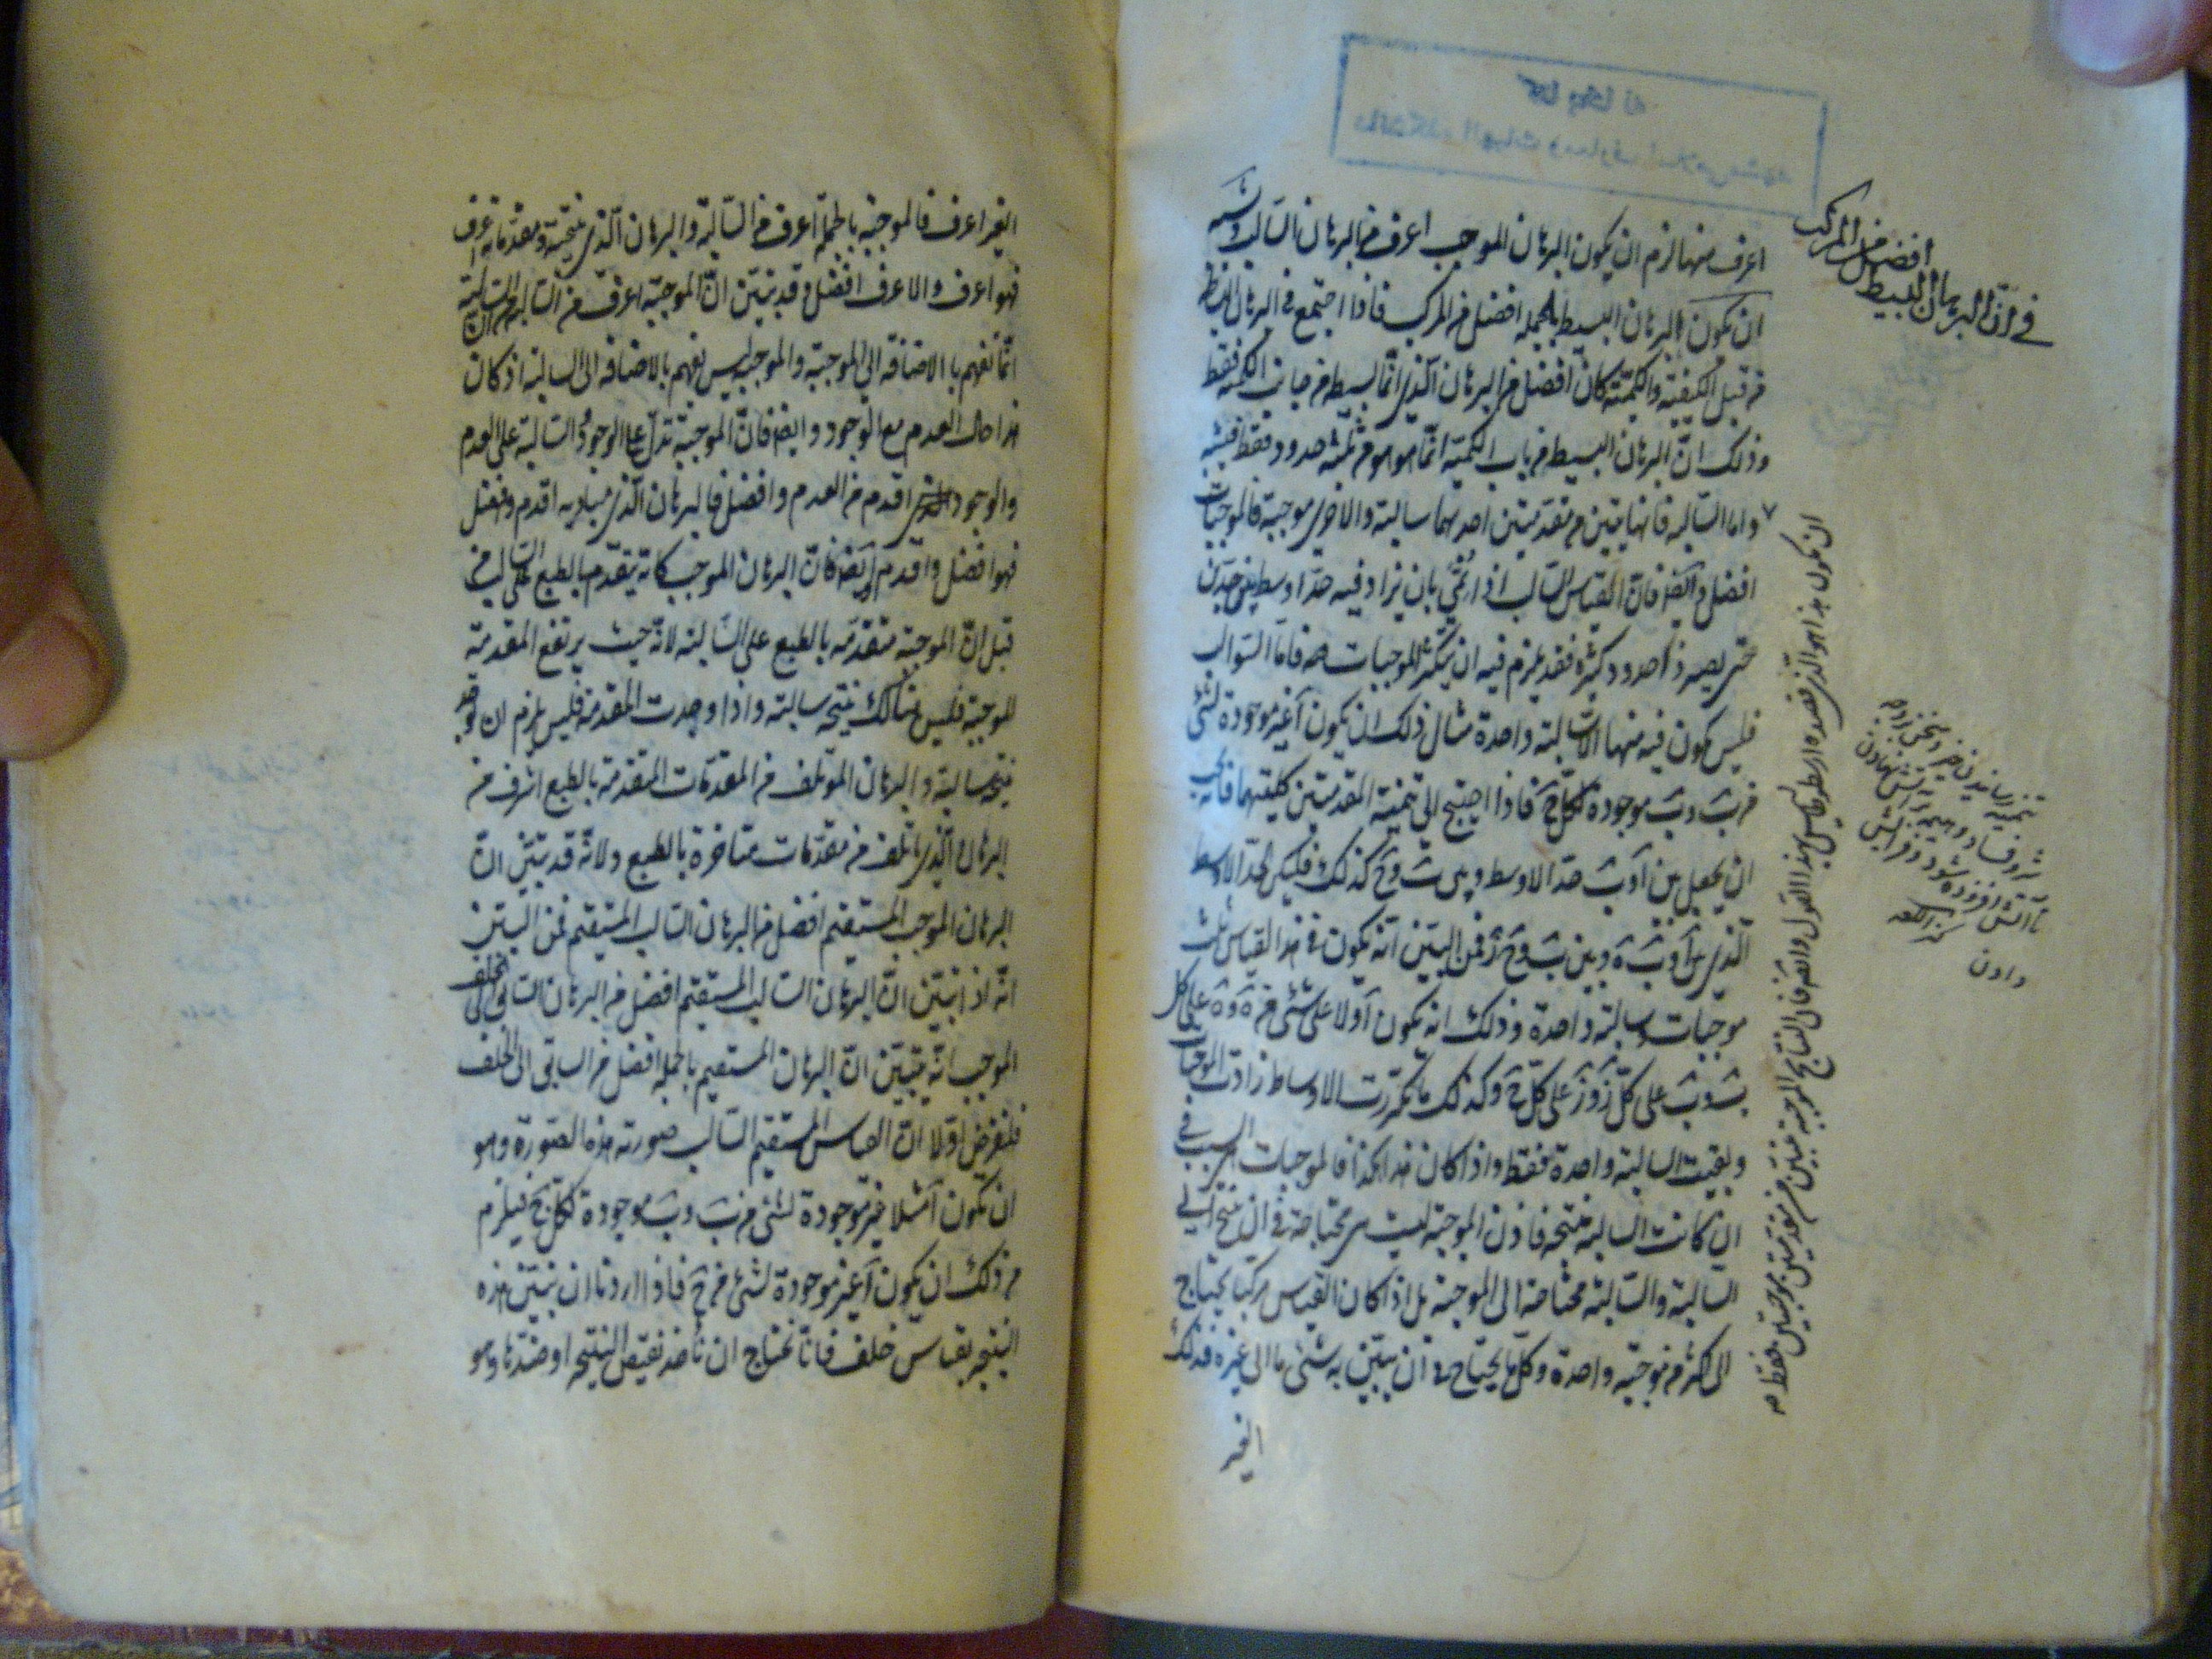 اعرف منها لزم ان يكون البرهان الموجب اعرف من البرهان السالب ويشبه
ان يكون البرهان البسيط بالجمله افضل من المركب فاذا اجتمع فى البرهان البساطة
من قبل الكيفيّه والكميّته كان افضل من البرهان الّذى انّما بسيط من جانب الكميّه فقط
وذلك انّ البرهان البسيط من باب الكميّه انّما هو هو من ثلثه حدود فقط فيشبه
واما السّالبه فانها تبيّن من مقدمتين احديهما سالبته والاخرى موجبة فالموجبات
افضل وايضا فانّ القياس السّالب اذا نُمّى بان يزاد فيه حدّا اوسط بين حدّين
حتى يصير ذا حدود كثيرة فقد يلزم فيه ان يتكثر الموجبات فيه فامّا السّوالب
فليس يكون فيه منها الاّ سالبته واحدة مثال ذلك ان يكون آ غير موجودة لشئ
من بَ وبَ موجودة لكلّ جَ فاذا احتيج الى تنمية المقدمتين كليتهما فانّه يجب
ان يجعل بين آ وبَ حدّ الاوسط وبين بَ وجَ كذلك فليكن الحدّ الاوسط
الّذى بين آ وبَ ه وبين بَ وجَ زَ فمن البيّن انّه يكون فى هذا القياس ثلث
موجبات وسالبته واحدة وذلك انه يكون آ ولا على شئ من هَ وهَ على كل
بَ وبَ على كلّ زَ وزَ على كلّ جَ وكذلك ما تكرّرت الاوساط زادت الموجبات
وبقيت السالبته واحدة فقط واذا كان هذا هكذا فالموجبات السبب فى
ان كانت السالبته منتجه فاذن الموجبة ليست هى محتاجة فى ان تنتج الى
السالبته والسّالبته محتاجة الى الموجبة بل اذا كان القياس مركبا يحتاج
الى اكثر من موجبّه واحدة وكلّ ما يحتاج فى ان يبيّن به شئ ما الى غيره فذلك
الغير
فى انّ البرهان البسيط
افضل من المركب
ان يكون هذا هو الّذى قصده ارسطوطاليس بهذا القول وايضا فان النتائج الموجبة تبيّن من مقدمتين موجبتين فقط
دادن
الغير اعرف فالموجبة بالجملة اعرف من السّالبة والبرهان الّذى نتيجته ومقدماته اعرف
فهو اعرف والاعرف افضل وقد تبيّن انّ الموجبّة اعرف من السّالبة من ان السّالبة
انّما تفهم بالاضافه الى الموجبّة والموجبة ليس تفهم بالاضافه الى السالبة اذ كان
هذا حال العدم مع الوجود وايضا فانّ الموجبّة تدلّ على الوجود والسّالبة على العدم
والوجود اقدم من العدم وافضل فالبرهان الّذى مباديه اقدم وافضل
فهو افضل واقدم وايضا فانّ البرهان الموجب كانّه يتقدم بالطبع على السّالب من
قبل انّ الموجبّة متقدّمه بالطبع على السّالبته لانّه حيث يرتفع المقدمة
الموجبّة فليس هنالك نتيجه سالبته واذا وجدت المقدمة فليس يلزم ان توجد
نتيجه سالبته والبرهان المؤتلف من المقدمات المتقدمة بالطبع اشرف من
البرهان الّذى ياتلف من مقدّمات متاخرة بالطبع ولانّه قد تبيّن انّ
البرهان الموجب المستقيم افضل من البرهان السّالب المستقيم فمن البيّن
انّه اذا تبيّن انّ البرهان السالب المستقيم افضل من البرهان السايق الى الخلف
الموجب انّه يتبيّن انّ البرهان المستقيم بالجملة افضل من السايق الى الخلف
فلنفرض اوّلا انّ القياس المستقيم السّالب صورته هذه الصّورة وهو
ان تكون آ مثلا غير موجودة لشئ من بَ وبَ موجودة لكلّ جَ فيلزم
من ذلك ان يكون آ غير موجودة لشئ من جَ فاذا اردنا ان نبيّن هذه
النتيجه بقياس خلف فانّا نحتاج ان ناخذ نقيض النتيجه او ضدّها وهو